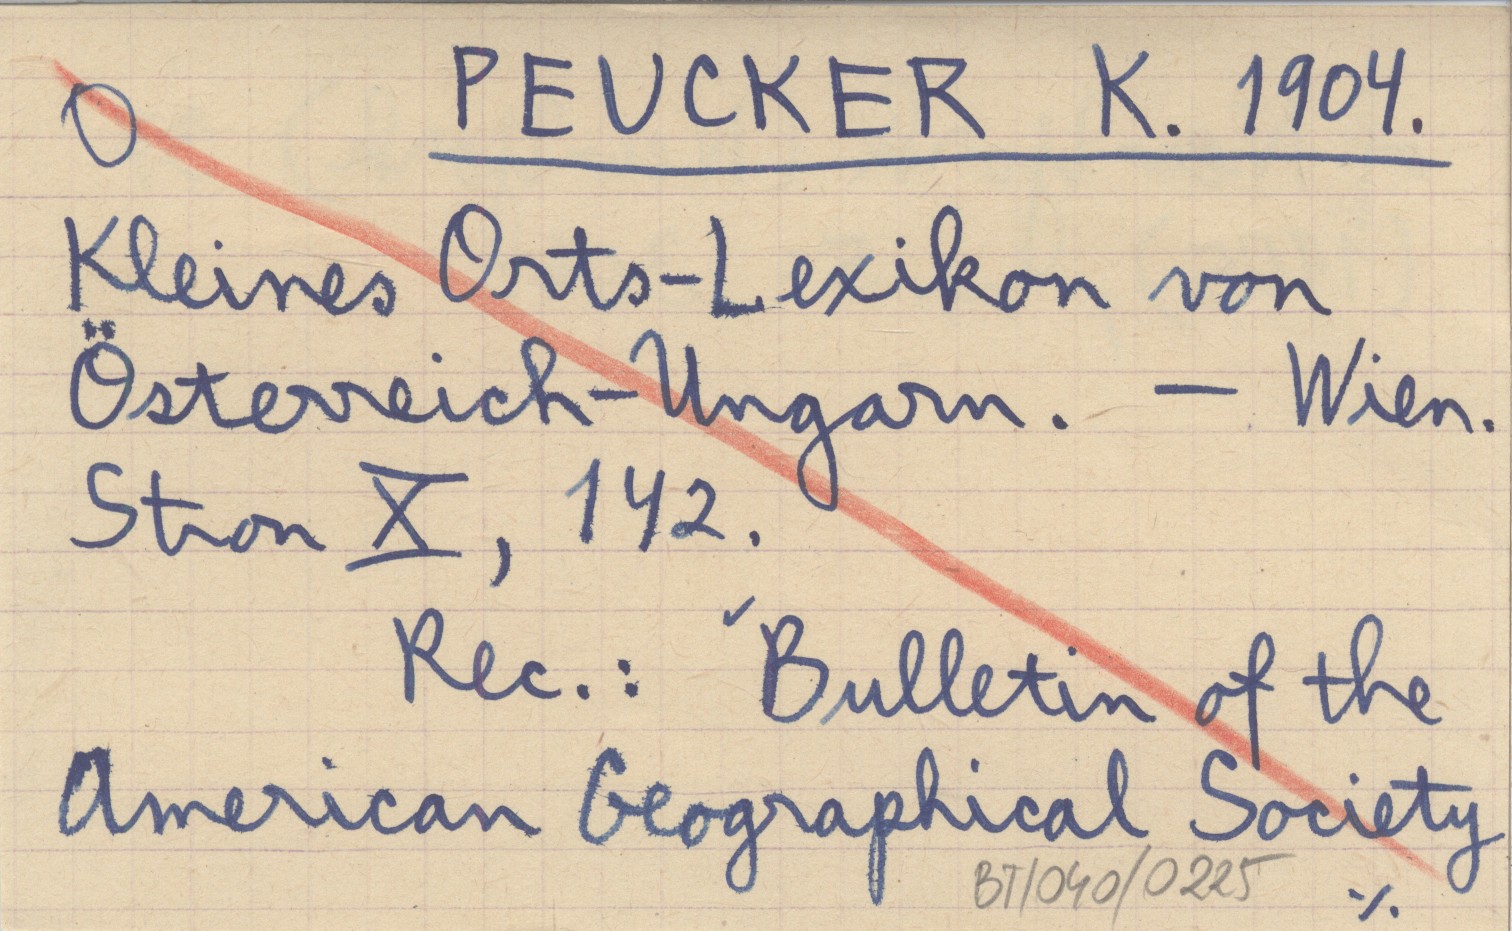 O PEUCKER K. 1904.
Kleines Orts-Lexikon von
Österreich-Ungarn. — Wien.
Stron X, 142.
Rec.: Bulletin of the
American Geographical Society
BT/040/0225
·/.